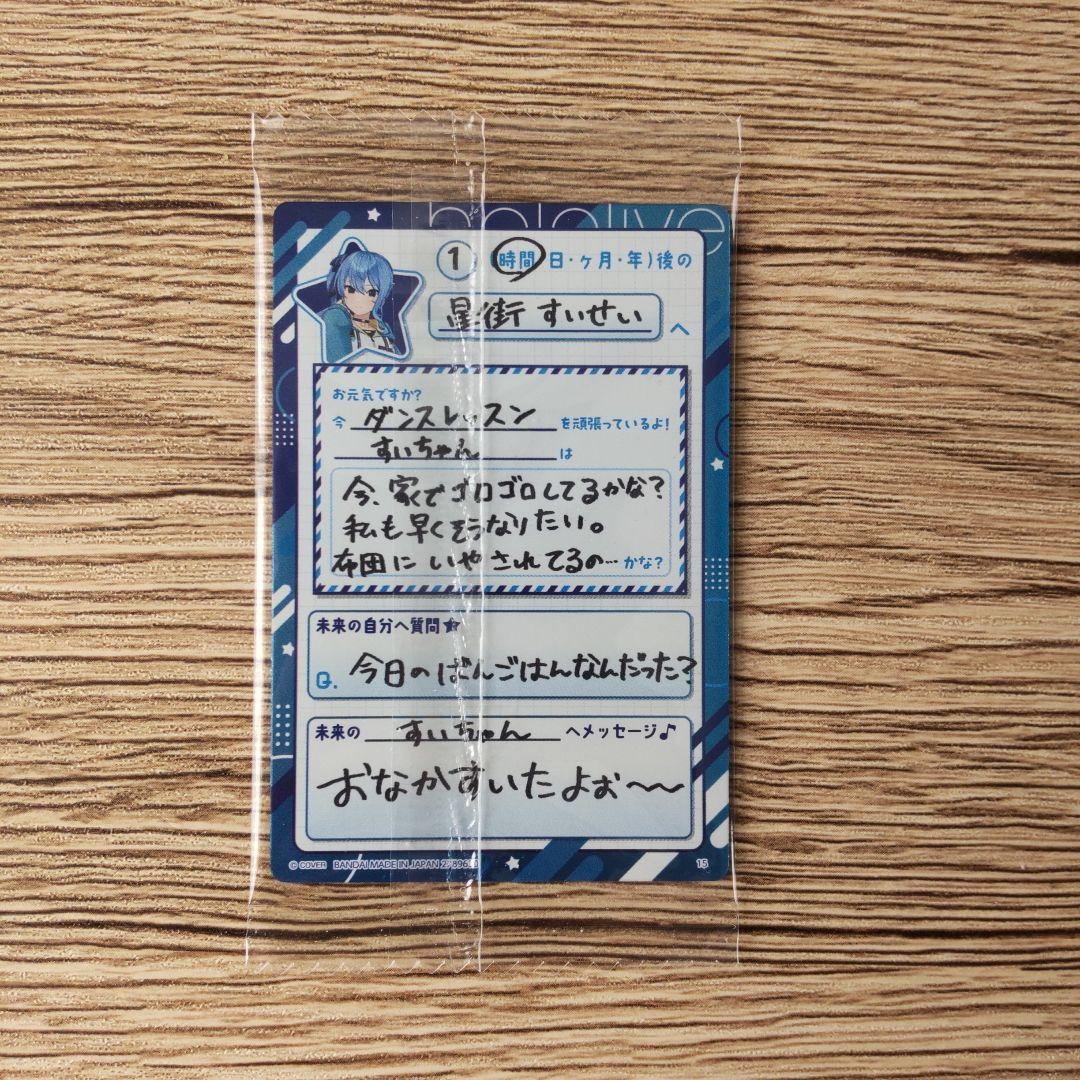 hololive
1 (時間・日・ヶ月・年)後の
星街 すいせい へ
お元気ですか?
今 ダンスレッスン を頑張っているよ!
すいちゃん は
今、家でゴロゴロしてるかな?
私も早くそうなりたい。
布団に いやされてるの… かな?
未来の自分へ質問★
Q. 今日のばんごはんなんだった?
未来の すいちゃん へメッセージ♪
おなかすいたよぉ〜〜
© COVER BANDAI MADE IN JAPAN
15